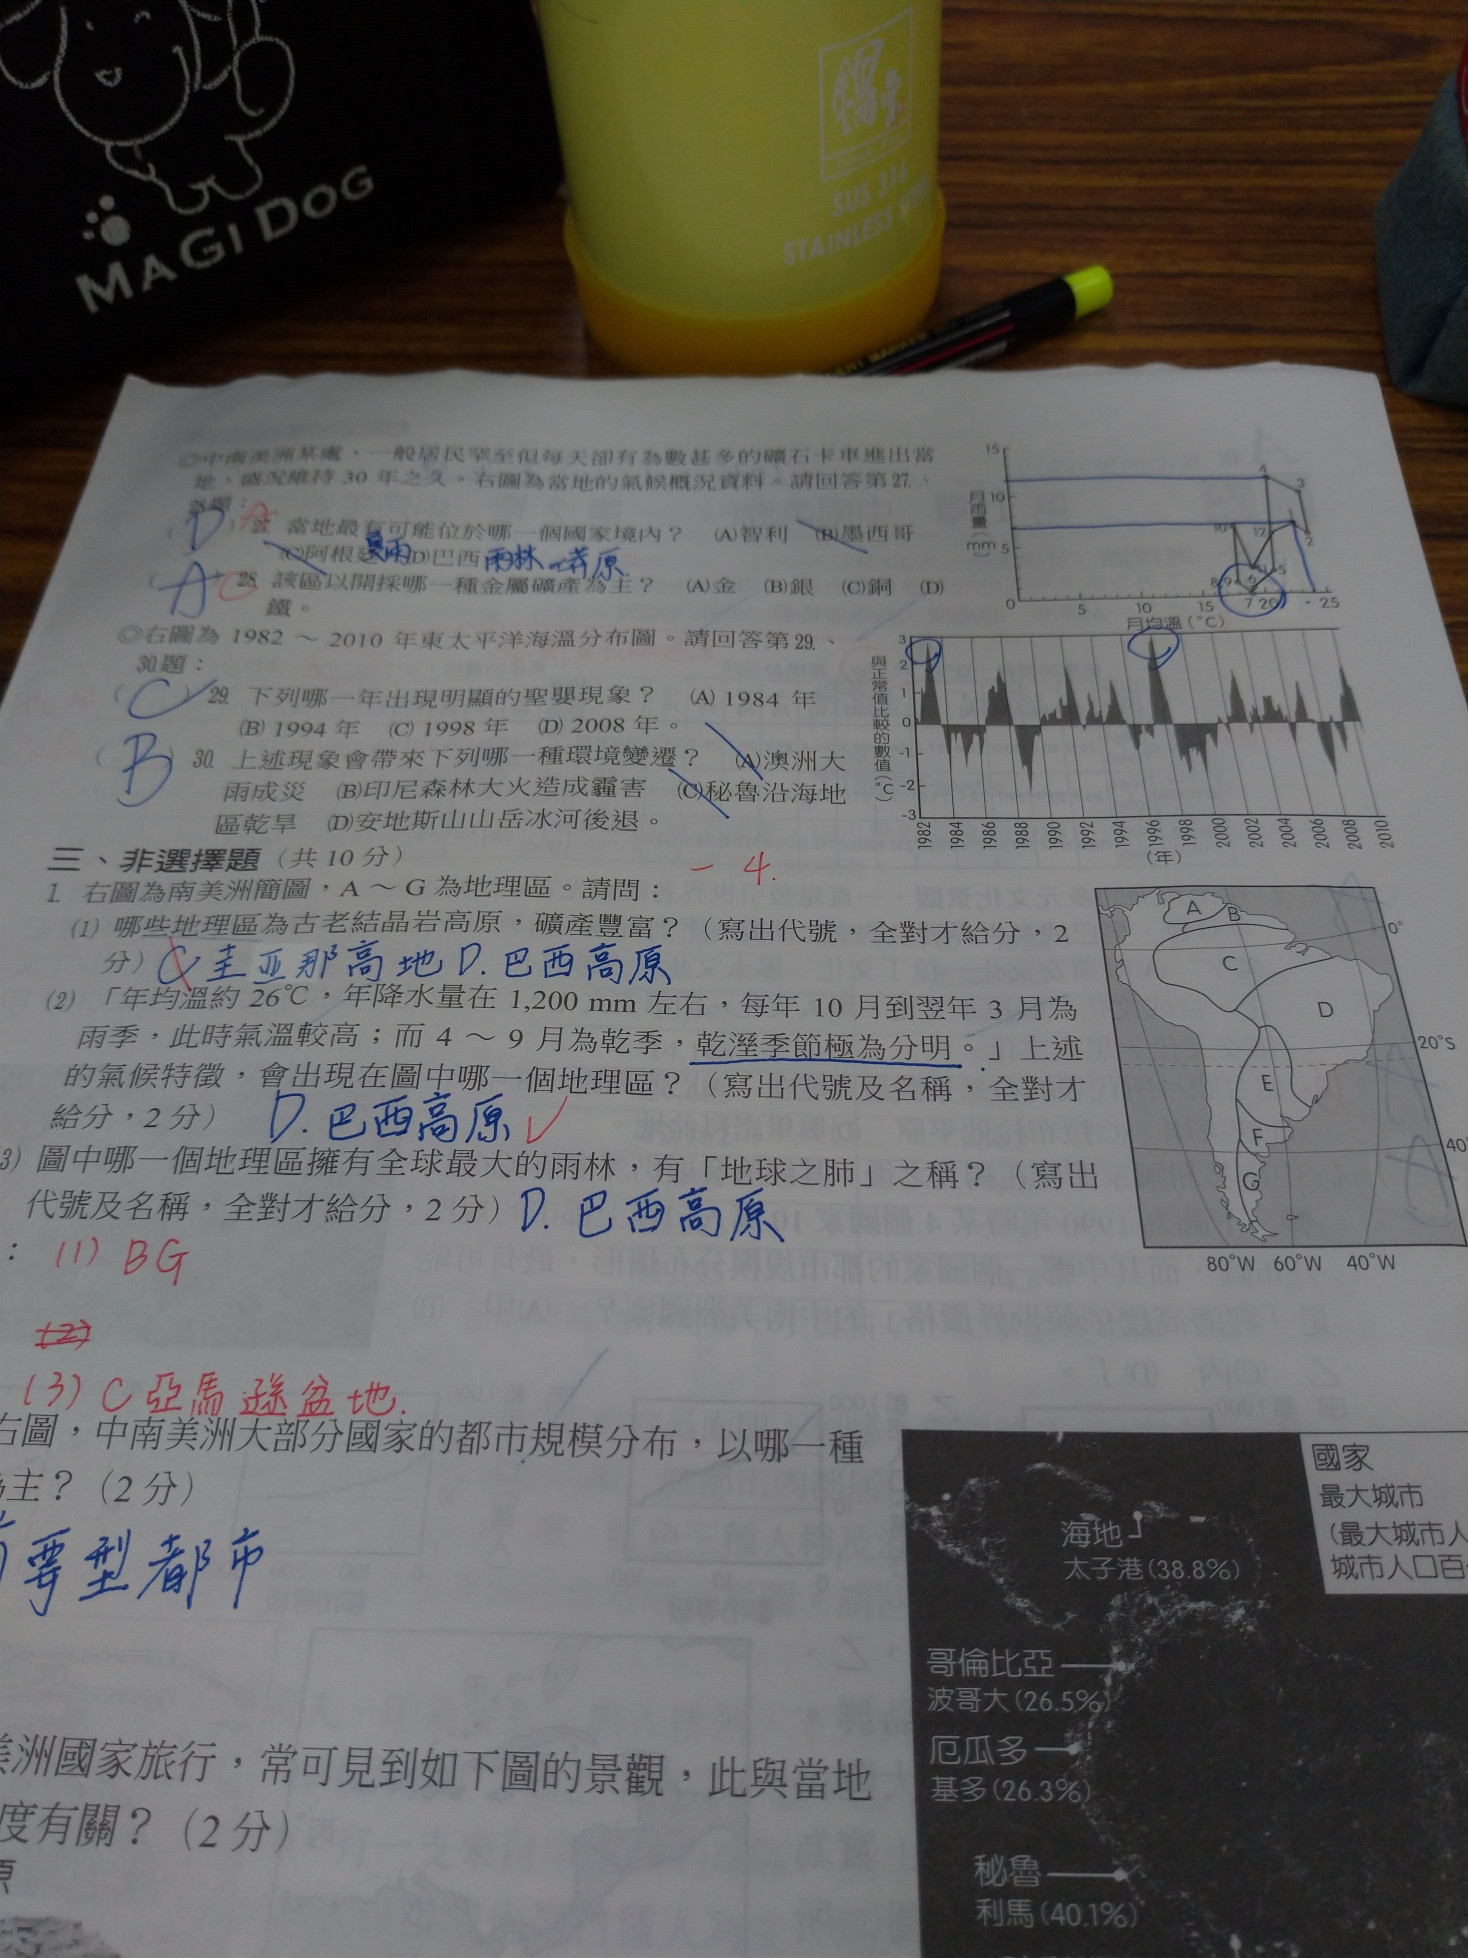 MAGI DOG
鍋寶
SUS 316
STAINLESS
◎中南美洲某處、一般居民罕至但每天卻有為數甚多的礦石卡車進出當
地、盛況維持 30 年之久。右圖為當地的氣候概況資料。請回答第27、
28題：
(D) A 27. 當地最有可能位於哪一個國家境內？ (A)智利 (B)墨西哥
(C)阿根廷 夏雨 (D)巴西 雨林 莽原
(A) C 28. 該區以開採哪一種金屬礦產為主？ (A)金 (B)銀 (C)銅 (D)
鐵。
月雨量(mm)
15
10
5
0 5 10 15 20 25
月均溫(℃)
◎右圖為 1982 ～ 2010 年東太平洋海溫分布圖。請回答第29、
30題：
(C) 29. 下列哪一年出現明顯的聖嬰現象？ (A) 1984 年
(B) 1994 年 (C) 1998 年 (D) 2008 年。
(B) 30. 上述現象會帶來下列哪一種環境變遷？ (A)澳洲大
雨成災 (B)印尼森林大火造成霾害 (C)秘魯沿海地
區乾旱 (D)安地斯山山岳冰河後退。
與正常值比較的數值(℃)
3
2
1
0
-1
-2
-3
1982 1984 1986 1988 1990 1992 1994 1996 1998 2000 2002 2004 2006 2008 2010
(年)
三、非選擇題（共 10 分）
- 4.
1. 右圖為南美洲簡圖，A ～ G 為地理區。請問：
(1) 哪些地理區為古老結晶岩高原，礦產豐富？（寫出代號，全對才給分，2
分）C 圭亚那高地 D. 巴西高原
(2) 「年均溫約 26℃，年降水量在 1,200 mm 左右，每年 10 月到翌年 3 月為
雨季，此時氣溫較高；而 4 ～ 9 月為乾季，乾溼季節極為分明。」上述
的氣候特徵，會出現在圖中哪一個地理區？（寫出代號及名稱，全對才
給分，2 分） D. 巴西高原
3) 圖中哪一個地理區擁有全球最大的雨林，有「地球之肺」之稱？（寫出
代號及名稱，全對才給分，2 分）D. 巴西高原
A
B
C
D
E
F
G
0°
20°S
40
80°W 60°W 40°W
: (1) BG
(2)
(3) C 亞馬遜盆地.
右圖，中南美洲大部分國家的都市規模分布，以哪一種
為主？（2 分）
要型都市
國家
最大城市
(最大城市人
城市人口百
海地
太子港(38.8%)
哥倫比亞
波哥大(26.5%)
厄瓜多
基多(26.3%)
秘魯
利馬(40.1%)
美洲國家旅行，常可見到如下圖的景觀，此與當地
度有關？（2 分）